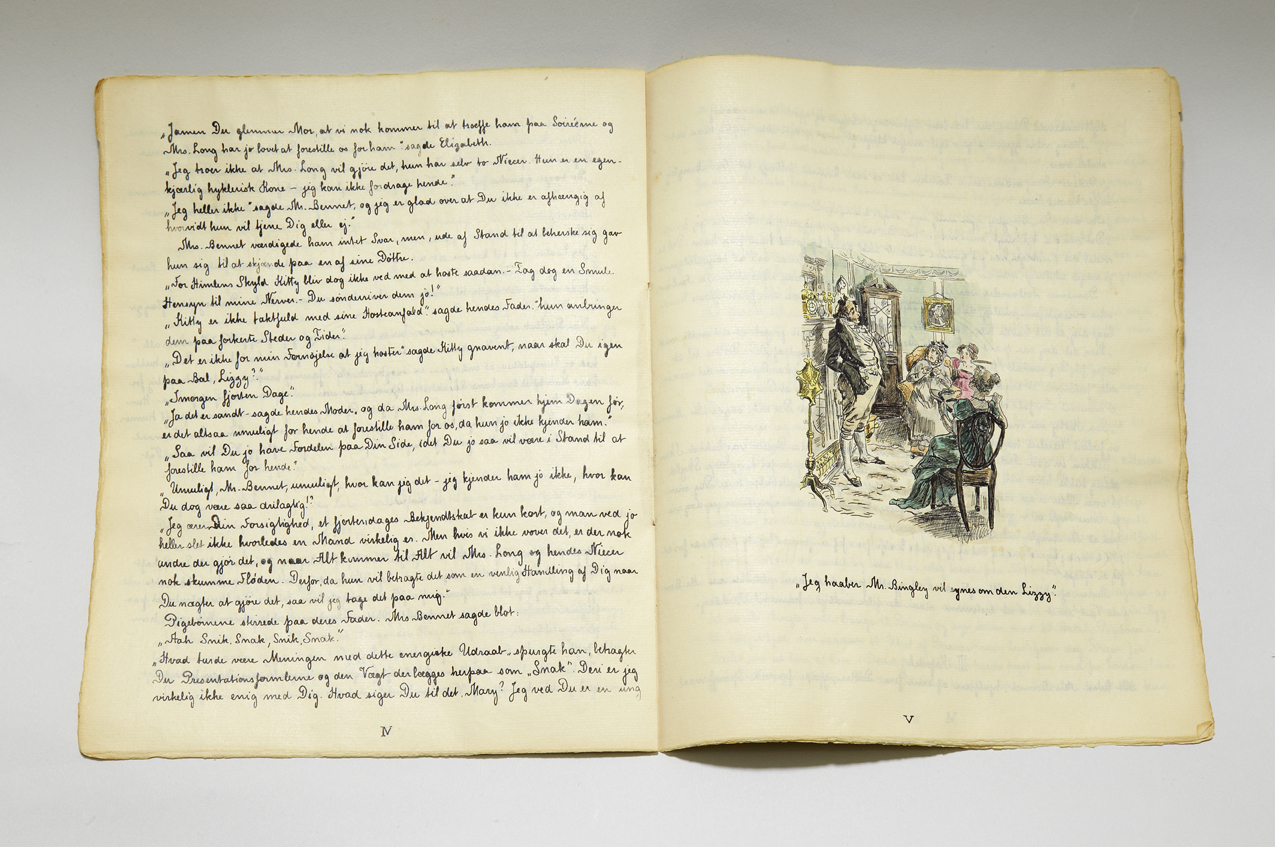 „Jamen Du glemmer Mor, at vi nok kommer til at træffe ham paa Soiréerne og
Mrs. Long har jo lovet at forestille os for ham" sagde Elizabeth.
„Jeg troer ikke at Mrs. Long vil gjöre det, hun har selv to Niecer. Hun er en egen-
kjærlig hyklerisk Kone – jeg kan ikke fordrage hende."
„Jeg heller ikke" sagde Mr. Bennet, og jeg er glad over at Du ikke er afhængig af
hvorvidt hun vil tjene Dig eller ej."
Mrs. Bennet værdigede ham intet Svar, men, ude af Stand til at beherske sig gav
hun sig til at skjænde paa en af sine Döttre.
„For Himlens Skyld Kitty bliv dog ikke ved med at hoste saadan. – Tag dog en Smule
Hensyn til mine Nerver. – Du sönderriver dem jo!"
„Kitty er ikke taktfuld med sine Hosteanfald" sagde hendes Fader. "hun anbringer
dem paa forkerte Steder og Tider."
„Det er ikke for min Fornöjelse at jeg hoster" sagde Kitty gnavent, naar skal Du igen
paa Bal, Lizzy?"
„Imorgen fjorten Dage."
„Ja det er sandt – sagde hendes Moder, og da Mrs. Long först kommer hjem Dagen för,
er det altsaa umuligt for hende at forestille ham for os, da hun jo ikke kjender ham."
„Saa vil Du jo have Fordelen paa Din Side, idet Du jo saa vil være i Stand til at
forestille ham for hende."
„Umuligt, Mr. Bennet, umuligt, hvor kan jeg det – jeg kjender ham jo ikke, hvor kan
Du dog være saa drilagtig!"
„Jeg ærer Din Forsigtighed, et fjortendages Bekjendtskab er kun kort, og man ved jo
heller slet ikke hvorledes en Mand virkelig er. Men hvis vi ikke vover det, er der nok
andre der gjör det, og naar Alt kommer til Alt vil Mrs. Long og hendes Niecer
nok skumme Flöden. Derfor, da hun vil betragte det som en venlig Handling af Dig naar
Du nægter at gjöre det, saa vil jeg tage det paa mig."
Pigebörnene stirrede paa deres Fader. Mrs Bennet sagde blot:
„Aah Snik, Snak, Snik, Snak."
„Hvad turde være Meningen med dette energiske Udraab, spurgte han, betragter
Du Presentationsformlerne og den Vægt der lægges herpaa som „Snak". Deri er jeg
virkelig ikke enig med Dig. Hvad siger Du til det, Mary? Jeg ved Du er en ung
IV
„Jeg haaber Mr. Bingley vil synes om den Lizzy".
V